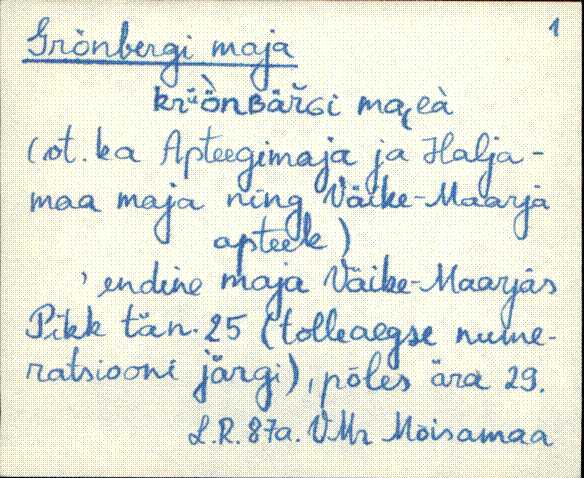 1
Grönbergi maja
krüönBäŕGi maįeà
(vt. ka Apteegimaja ja Halja-
maa maja ning Väike-Maarja
apteek)
, endine maja Väike-Maarjas
Pikk tän. 25 (tolleaegse nume-
ratsiooni järgi), põles ära 29.
L.R. 87a. VMr Mõisamaa